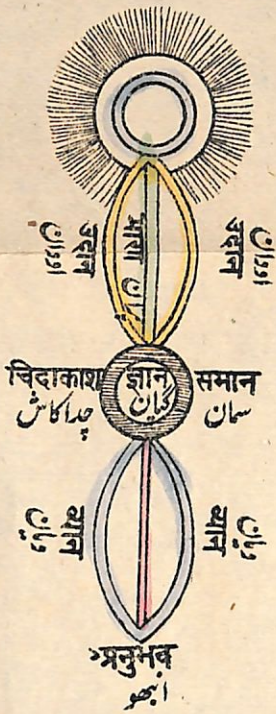 उदान
اودان
उदान
اودان
चिदाकाश
چداکاش
ज्ञान
گیان
समान
سمان
व्यान
ویان
व्यान
ویان
अनुभव
انبھو